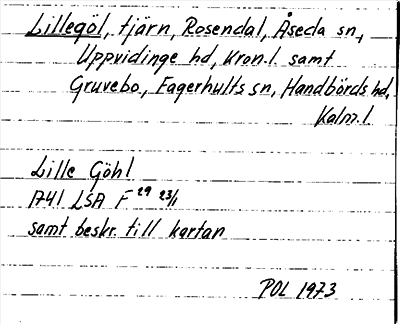 Lillegöl, tjärn, Rosendal, Åseda sn,
Uppvidinge hd, Kron.l. samt
Gruvebo, Fagerhults sn, Handbörds hd,
Kalm.l
Lille Göhl
1741 LSA F 29 23/1
samt beskr. till kartan
POL 1973